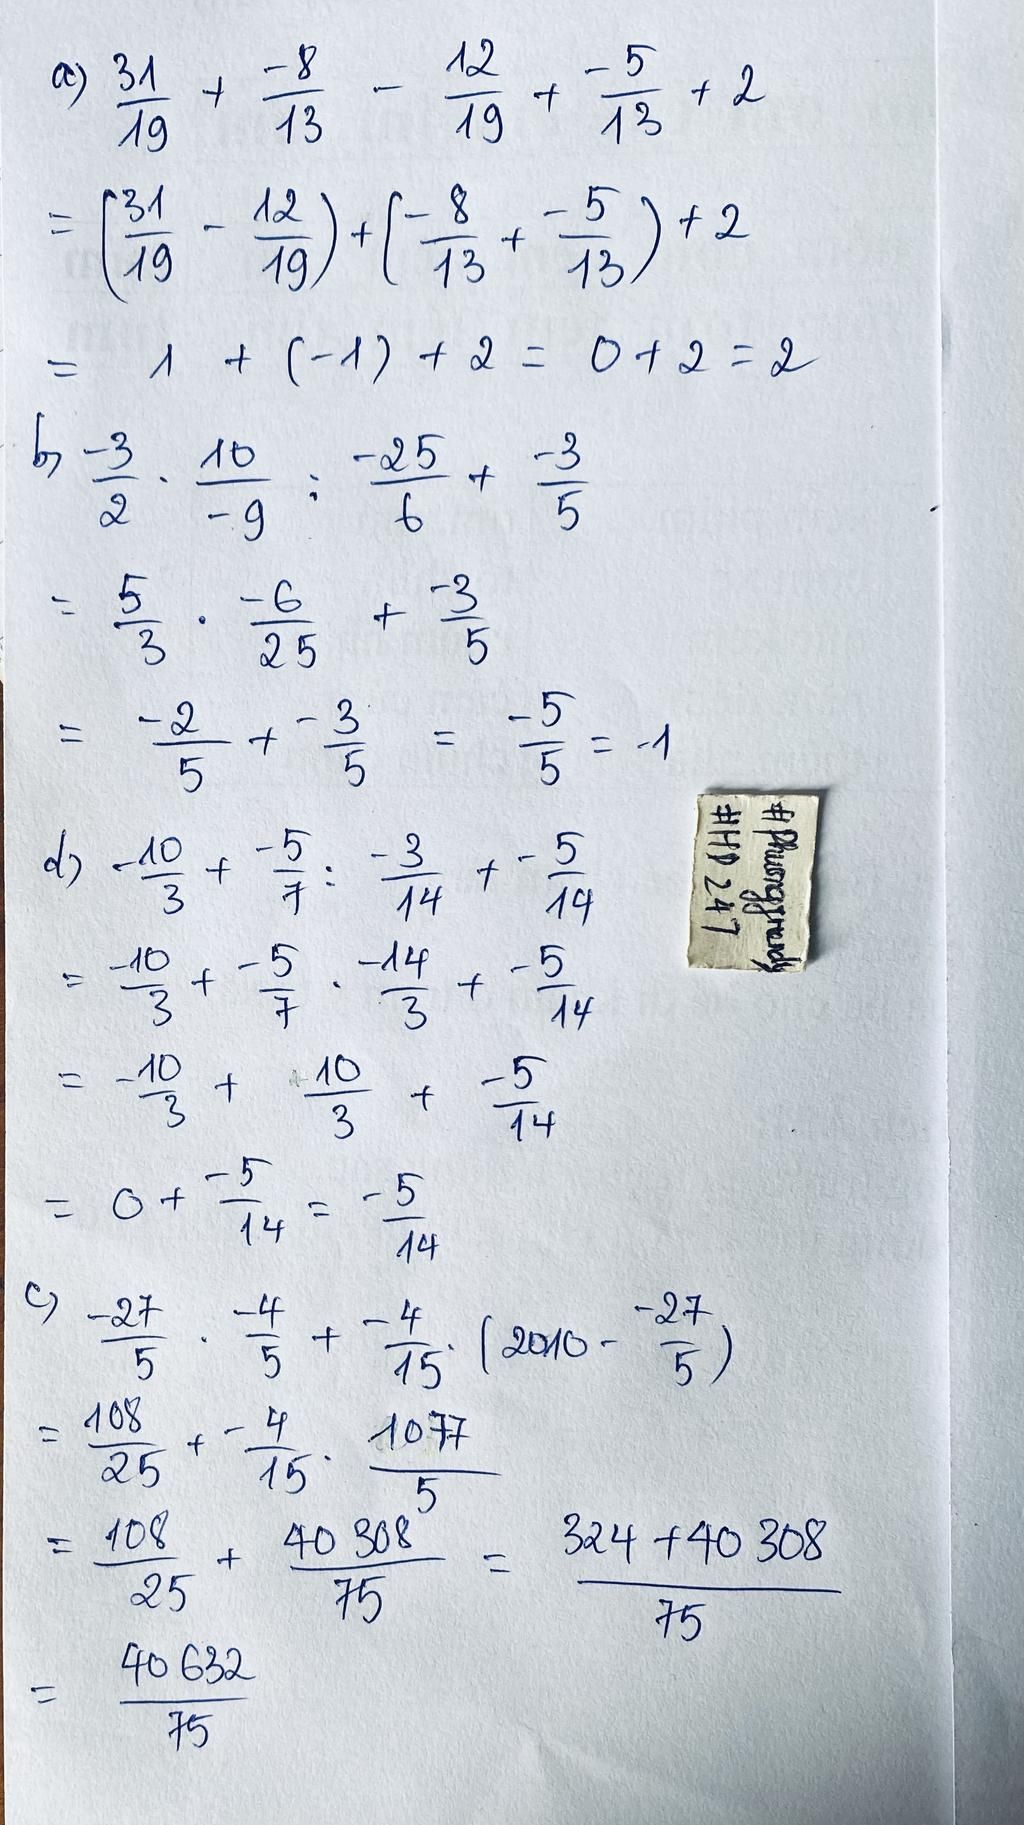 a) 31/19 + -8/13 - 12/19 + -5/13 + 2
= (31/19 - 12/19) + (-8/13 + -5/13) + 2
= 1 + (-1) + 2 = 0 + 2 = 2
b) -3/2 . 10/-9 : -25/6 + -3/5
= 5/3 . -6/25 + -3/5
= -2/5 + -3/5 = -5/5 = -1
d) -10/3 + -5/7 : -3/14 + -5/14
= -10/3 + -5/7 . -14/3 + -5/14
= -10/3 + 10/3 + -5/14
= 0 + -5/14 = -5/14
c) -27/5 . -4/5 + -4/15 . (2010 - -27/5)
= 108/25 + -4/15 . 1077/5
= 108/25 + 40 308/75 = 324 + 40 308/75
= 40 632/75
#HD 247